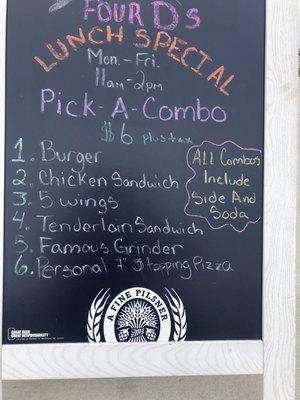 FOUR D's
LUNCH SPECIAL
Mon.-Fri.
11am-2pm
Pick-A-Combo
$6 plus tax
1. Burger
2. Chicken Sandwich
3. 5 wings
4. Tenderloin Sandwich
5. Famous Grinder
6. Personal 7" 3 topping Pizza
All Combos
Include
Side And
Soda
A FINE PILSNER
GREAT BEER
GREAT RESPONSIBILITY